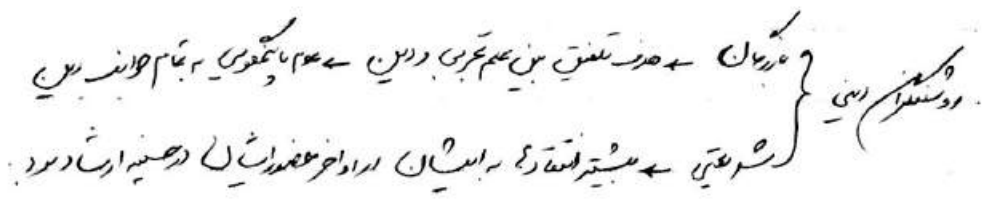 روشنفکران دینی
بازرگان ← هدف تلفیق بین علم تجربی و دین ← عدم پاسخگویی به تمام جوانب دین
شریعتی ← بیشتر انتقادها به ایشان در اواخر حضور ایشان در حسینیه ارشاد بود.